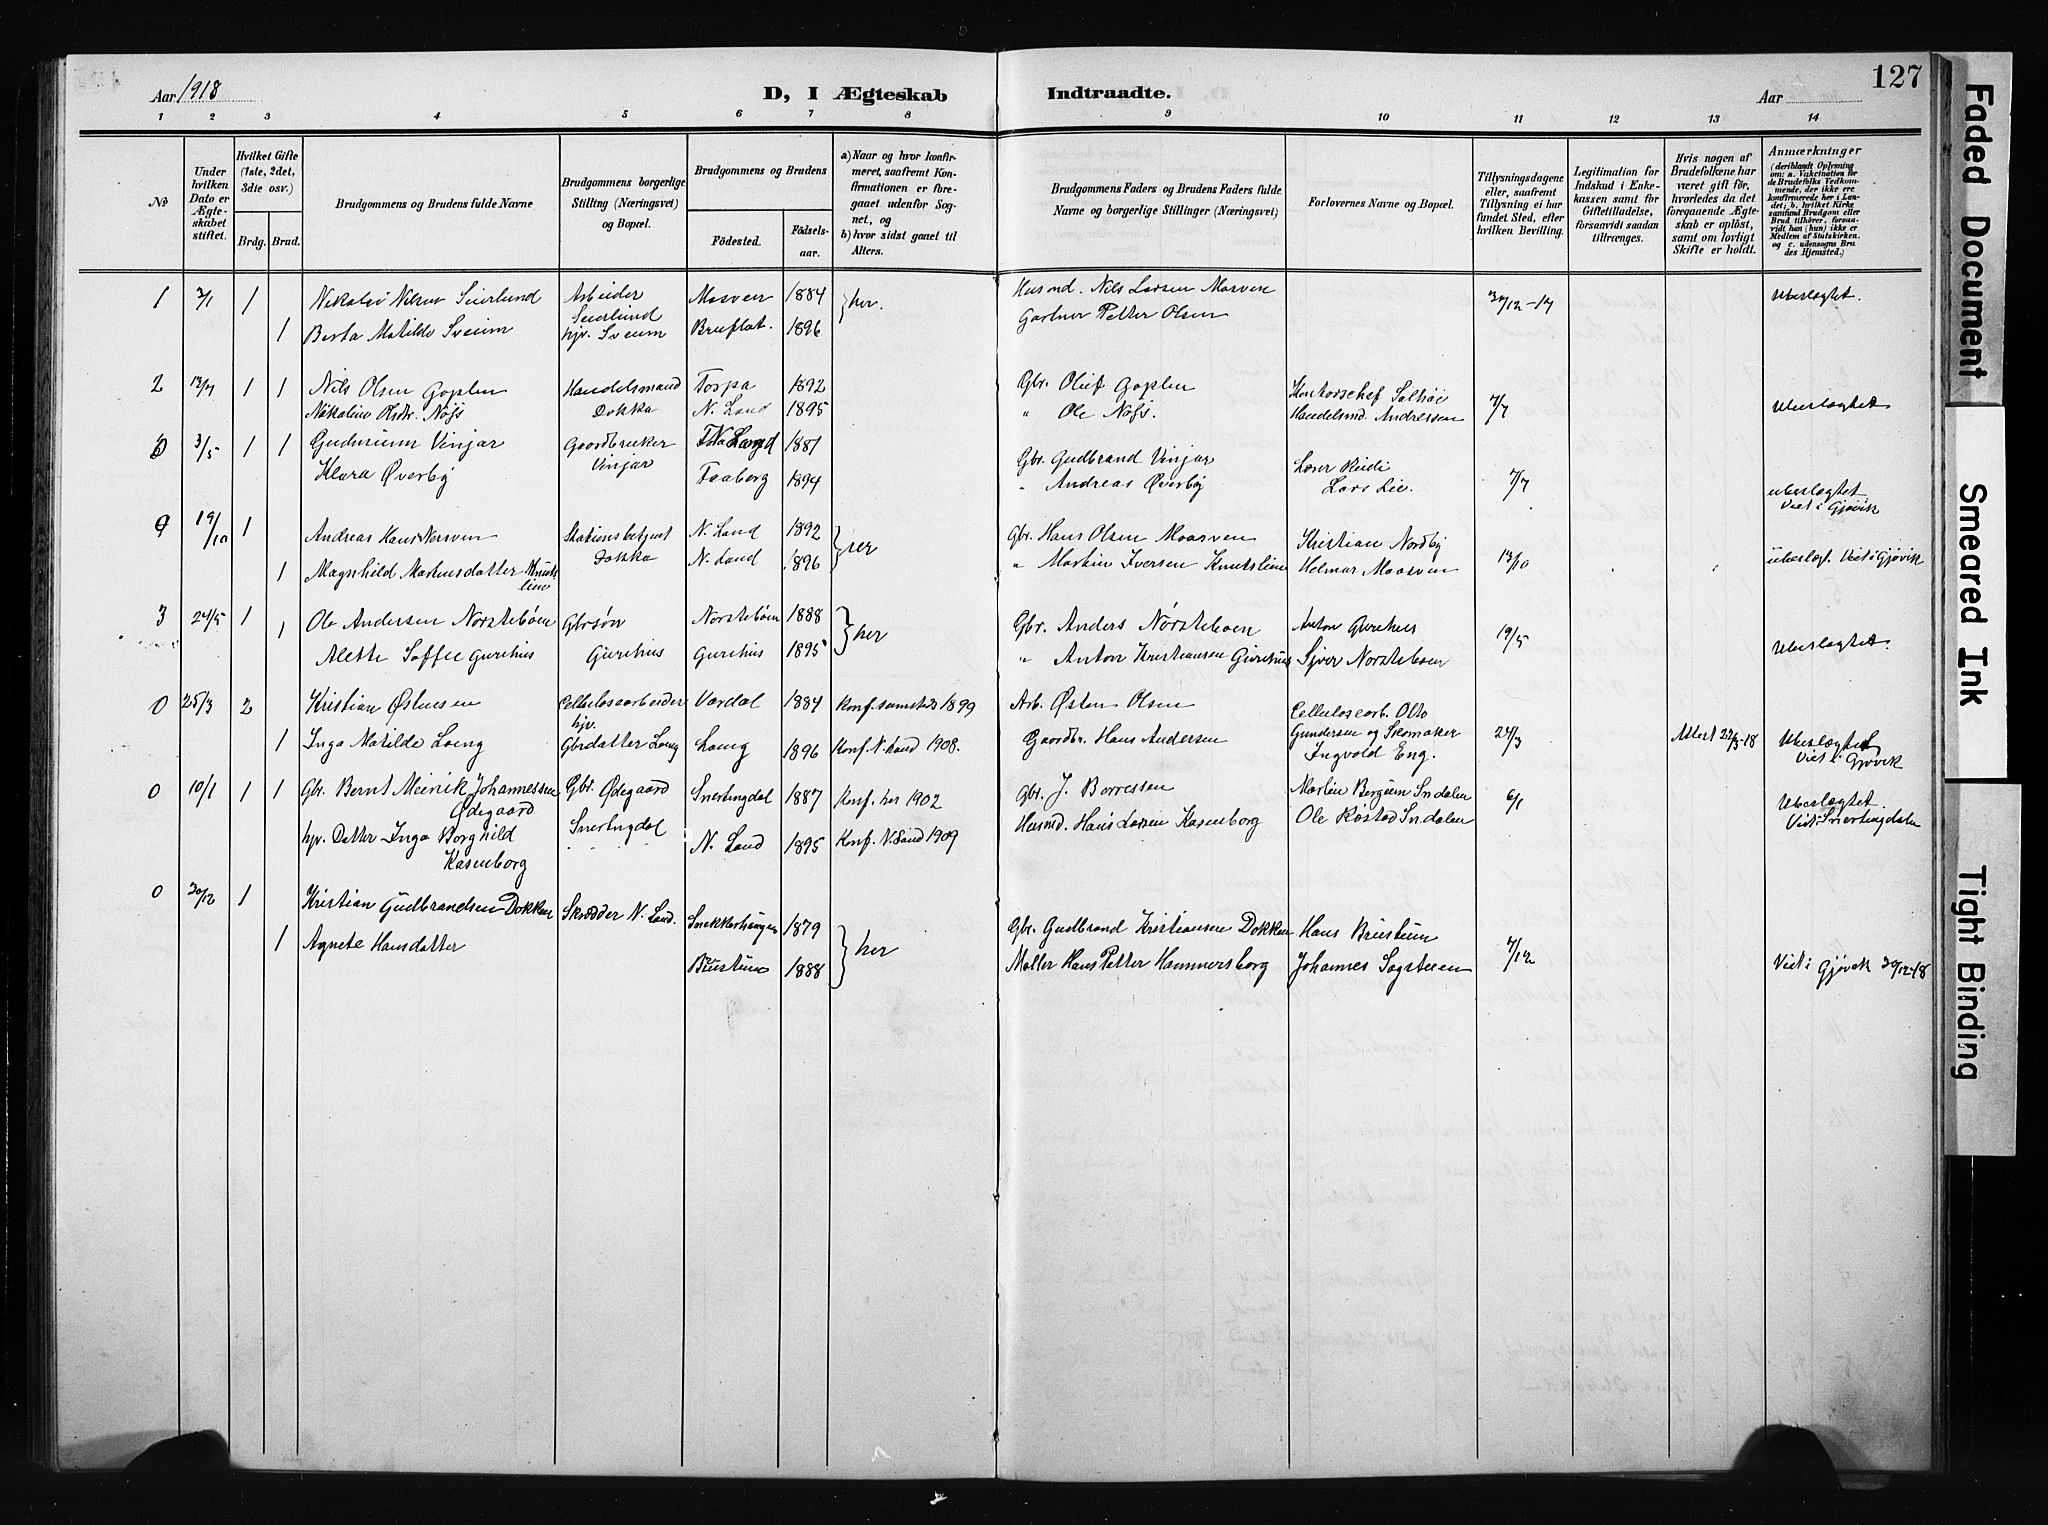 Aar 1918
D, I Ægteskab Indtraadte.
Aar
127
1 2 3 4 5 6 7 8 9 10 11 12 13 14
No
Under hvilken Dato er Ægteskabet stiftet.
Hvilket Gifte (1ste, 2det, 3die osv.)
Brdg. Brud.
Brudgommens og Brudens fulde Navne
Brudgommens borgerlige Stilling (Næringsvei) og Bopæl.
Brudgommens og Brudens
Födested. Födselsaar.
a) Naar og hvor konfirmeret, saafremt Konfirmationen er foregaaet udenfor Sognet, og
b) hvor sidst gaaet til Alters.
Brudgommens Faders og Brudens Faders fulde Navne og borgerlige Stillinger (Næringsvei)
Forlovernes Navne og Bopæl.
Tillysningsdagene eller, saafremt Tillysning ei har fundet Sted, efter hvilken Bevilling.
Legitimation for Indskud i Enkekassen samt for Giftetilladelse, forsaavidt saadan tiltrænges.
Hvis nogen af Brudefolkene har været gift för, hvorledes da det foregaaende Ægteskab er oplöst, samt om lovligt Skifte er holdt.
Anmærkninger (deriblandt Oplysning om: a. Vakcination for de Brudefolks Vedkommende, der ikke ere konfirmerede her i Landet; b. hvilket Kirkesamfund Brudgom eller Brud tilhörer, forsaavidt han (hun) ikke er Medlem af Statskirken. og c. udensogns Brudes Hjemsted.)
1 3/1 1 Nikolai Nilsen Seierlund Arbeider Seierlund Masven 1884 } her. Husmd. Nils Larsen Masven 30/12-17 Ubeslægtet.
1 Berta Matilde Sveum hjv. Sveum Bruflat. 1896 Gartner Petter Olsen
2 13/7 1 1 Nils Olsen Goplen Handelsmand Torpa 1892 Gbr. Oluf Goplen Kontorschef Solhöi 7/7 Ubeslægtet
Nikoline Olsdtr. Nøss Dokka N. Land 1895 " Ole Nøss. Handelsmd. Andressen
3/5 1 1 Gudmund Vinjar Gaardbruker Vinjar N. Land 1881 Gbr. Gudbrand Vinjar Lærer 7/7 Ubeslægtet
Klara Øverby Faaberg 1894 " Andreas Øverby Lars Lie. Viet i Gjøvik
19/10 1 Andreas Hans Stationsbetjent N. Land 1892 } her Gbr. Hans Olsen Maasven Kristian Nordby 13/10 ubeslægt. Viet i Gjøvik
1 Magnhild Martinsdatter Knutslien Dokka N. Land 1896 " Martin Iversen Knutslien Helmar Maasven
3 24/5 1 Ole Andersen Norsteböen Gbrsön Norsteböen 1888 } her Gbr. Anders Nørsteboen Anton Gurihus 19/5 Ubeslægtet.
1 Alette Soffie Gurihus Gurihus Gurihus 1895 " Anton Kristiansen Gurihus Sjver Norsteboen
0 25/3 2 Kristian Østensen Cellulosearbeider Vardal 1884 Konf. samsteds 1899 Arb. Østen Olsen Cellulosearb. Otto 24/3 Attest 22/3-18 Ubeslægtet
1 Inga Matilde Loeng hjv. Gbrdatter Loeng Loeng 1896 Konf. N. Land 1908. Gaardbr. Hans Andersen Gundersen og Skomaker Ingvold Eng. Viet i Gjøvik
0 10/1 1 1 Gbr. Bernt Meinik Johannessen Ødegaard Gbr. Ødegaard Snertingdal 1887 Konf. her 1902 Gbr. J. Borressen Martin Bergum Sndalen 6/1 Ubeslægtet.
hjv. Datter Inga Borghild Kasenborg Snertingdal N. Land 1895 Konf. N. Land 1909 Husmd. Hans Larsen Kasenborg Ole Røstad Sndalen Viet i Snertingdalen
0 30/12 1 Kristian Gudbrandsen Dokken Skrædder N. Land. Snekkerhaugen 1879 } her Gbr. Gudbrand Kristiansen Dokken Hans Brustuen 7/12 Viet i Gjøvik 30/12-18
1 Agnete Hansdatter Brustuen 1888 Møller Hans Petter Hammersborg Johannes Sagsteen
Faded Document
Smeared Ink
Tight Binding